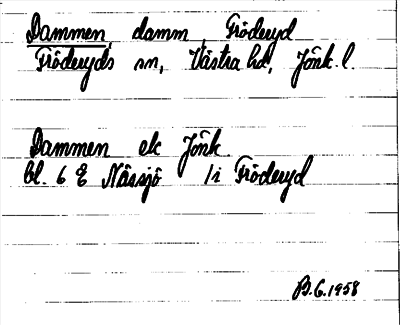 Dammen, damm, Fröderyd
Fröderyds sn, Västra hd, Jönk. l.
Dammen ek Jönk
bl. 6 E Nässjö 1 i Fröderyd
B.G. 1958